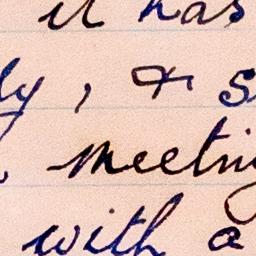 it has
ly, & s
meeting
with a